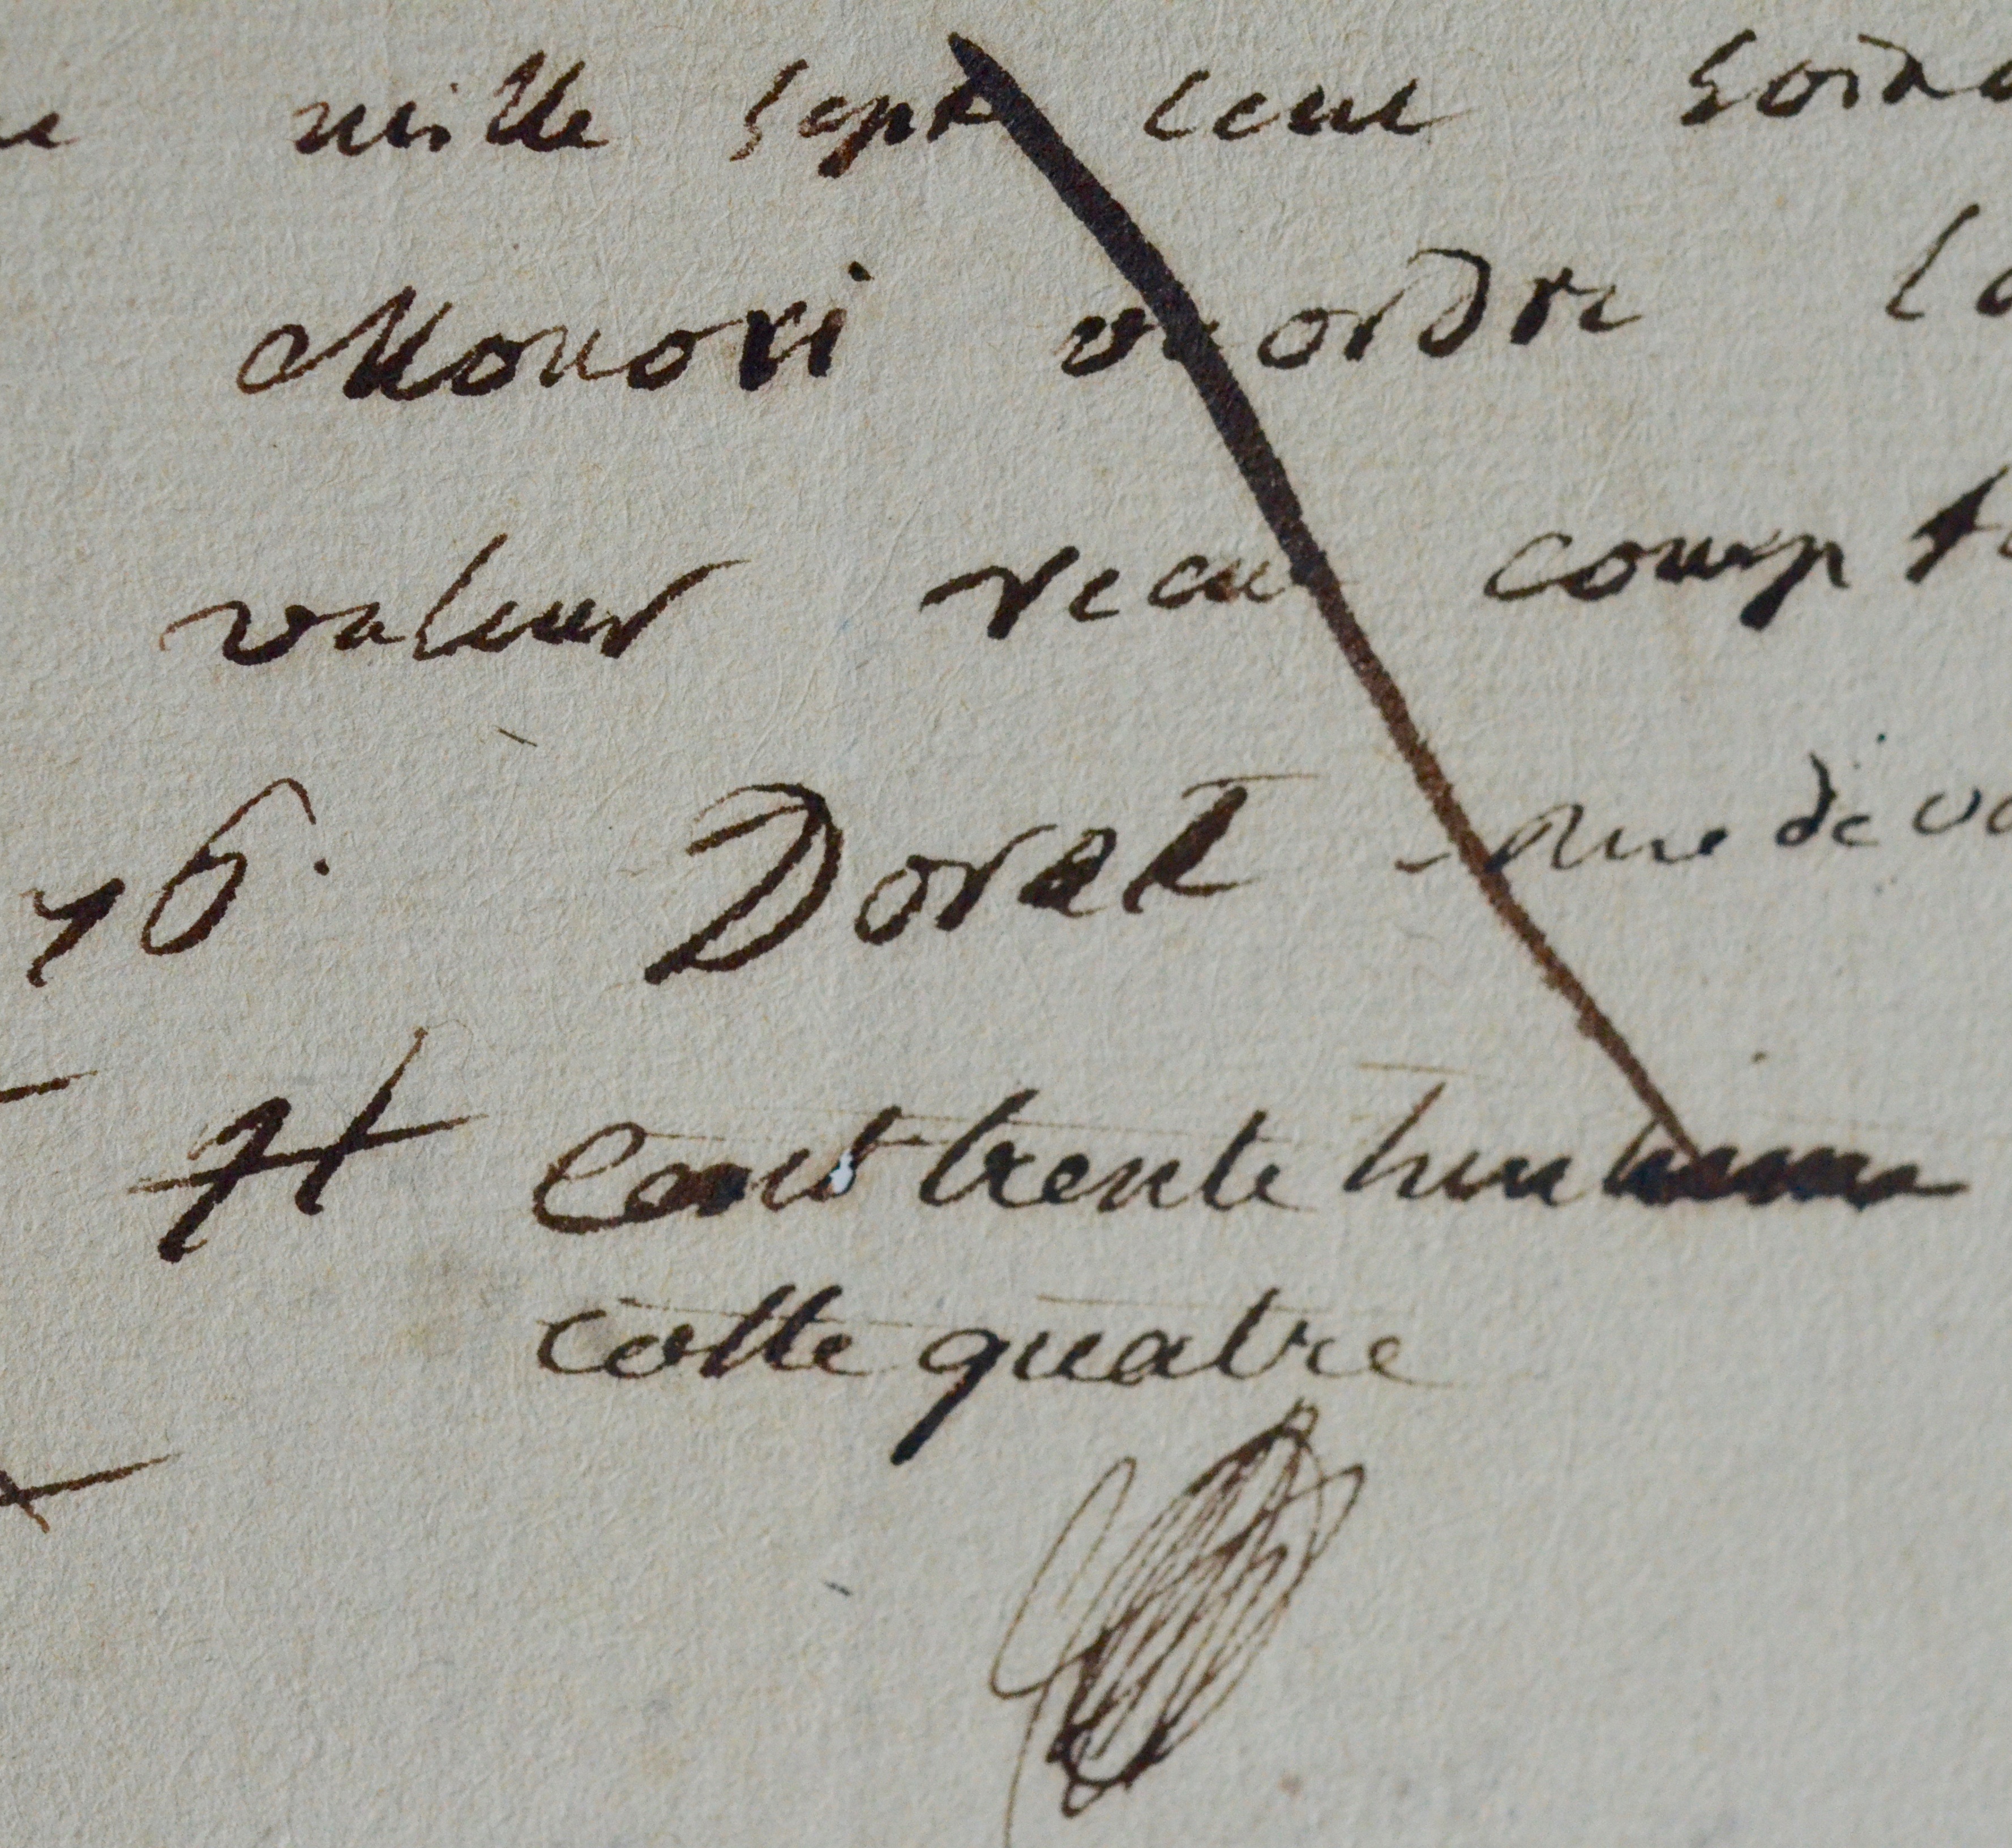 mille sept cent soixa
Monori ou ordre la
valeur recu compt
76. Dorat - rue de va
Cent trente huit
cotte quatre